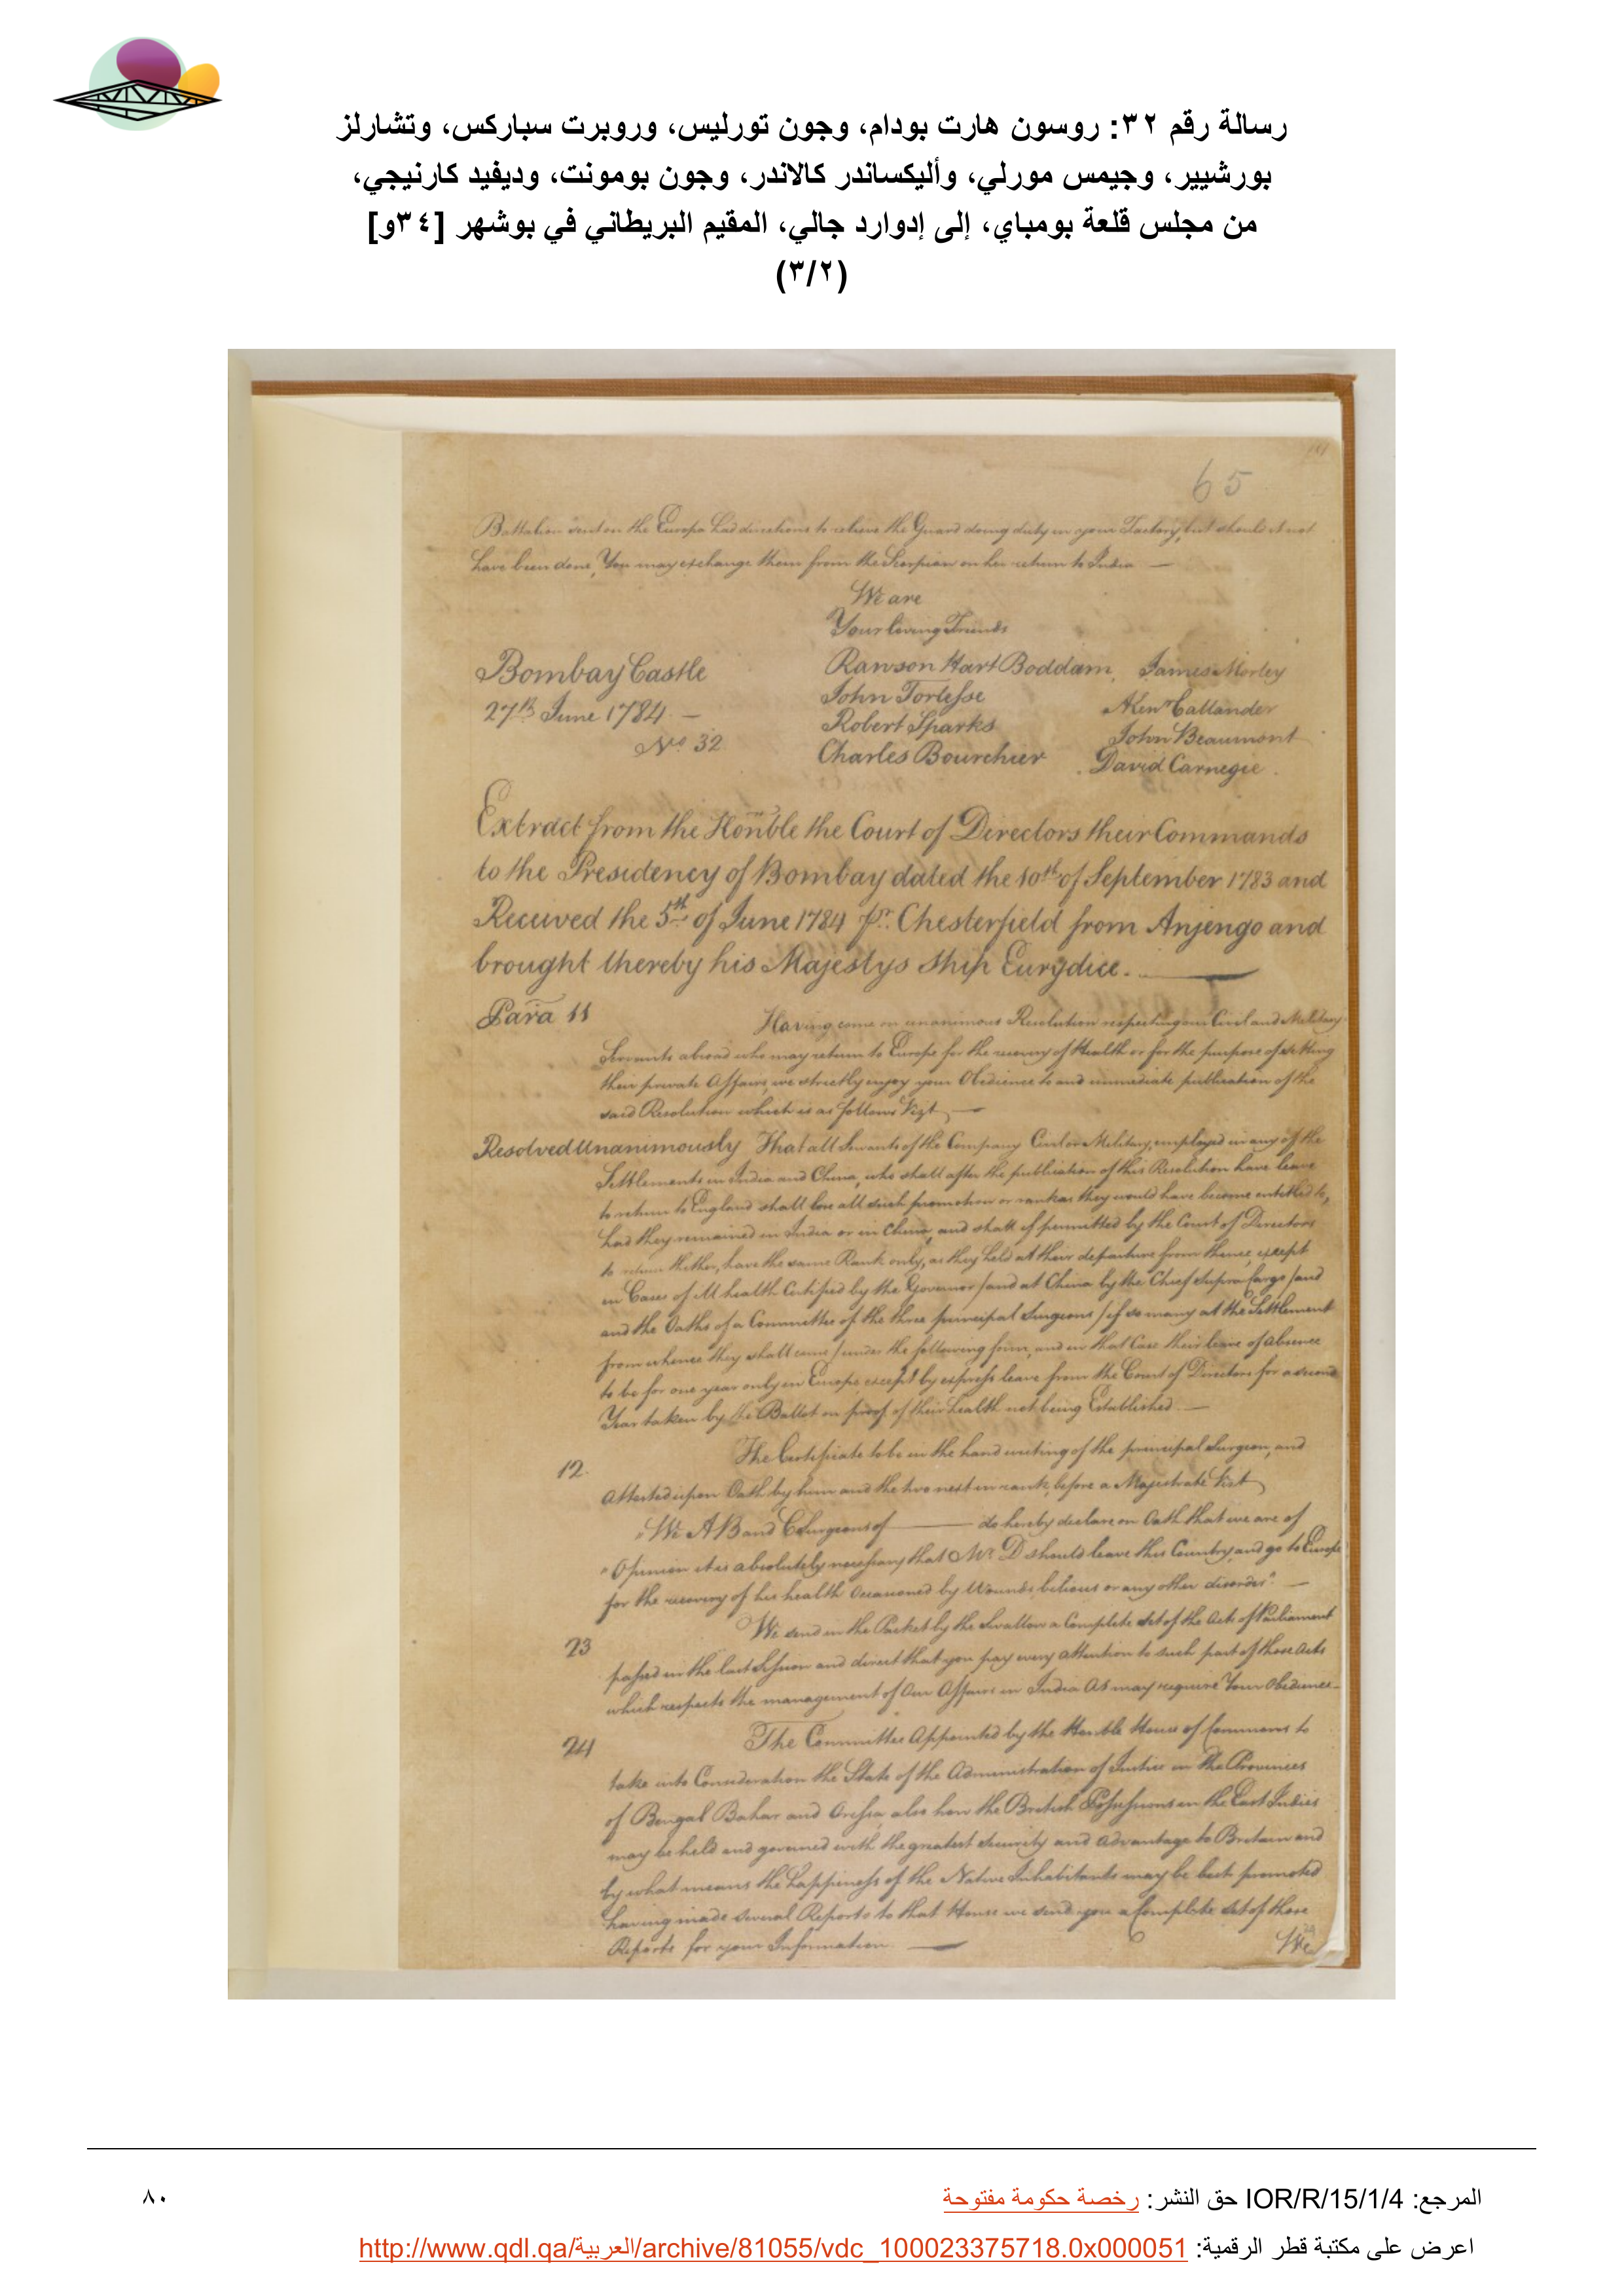 رسالة رقم ٣٢: روسون هارت بودام، وجون تورليس، وروبرت سباركس، وتشارلز
بورشيير، وجيمس مورلي، وأليكساندر كالاندر، وجون بومونت، وديفيد كارنيجي،
من مجلس قلعة بومباي، إلى إدوارد جالي، المقيم البريطاني في بوشهر [٣٤و]
(٣/٢)
65
Battalion sent on the Europa had directions to relieve the Guard doing duty in your Factory, but should it not
have been done, You may exchange them from the Scorpion on her return to India —
We are
Your loving Friends
Bombay Castle
27th June 1784 —
No 32
Rawson Hart Boddam
John Torlesse
Robert Sparks
Charles Bourchier
James Morley
Alexr Callander
John Beaumont
David Carnegie
Extract from the Honble the Court of Directors their Commands
to the Presidency of Bombay dated the 10th of September 1783 and
Received the 5th of June 1784 pr. Chesterfield from Anjengo and
brought thereby his Majestys Ship Eurydice. —
Para 11
Having come on unanimous Resolution respecting our Civil and Military
Servants abroad who may return to Europe for the recovery of Health or for the purpose of settling
their private Affairs, we strictly enjoy your Obedience to and immediate publication of the
said Resolution which is as follows Vizt —
Resolved Unanimously That all Servants of the Company Civil or Military, employed in any of the
Settlements in India and China, who shall after the publication of this Resolution have leave
to return to England shall lose all such promotion or rank as they would have become entitled to,
had they remained in India or in China, and shall if permitted by the Court of Directors
to return thither, have the same Rank only, as they held at their departure from thence, except
in Cases of Ill health Certified by the Governor / and at China by the Chief Supra Cargo / and
and the Oaths of a Committee of the three principal Surgeons / if so many at the Settlement
from whence they shall come / under the following form, and in that Case their leave of absence
to be for one year only in Europe except by express leave from the Court of Directors for a second
Year taken by the Ballot on proof of their health not being Established. —
12.
The Certificate to be in the hand writing of the principal Surgeon, and
Attested upon Oath by him and the two next in rank, before a Magistrate Vizt
"We A B and C Surgeons of ——— do hereby declare on Oath that we are of
"Opinion it is absolutely necessary that Mr. D should leave this Country, and go to Europe
for the recovery of his health Occasioned by Wounds bilious or any other disorder". —
23
We send in the Packet by the Swallow a Complete Set of the Acts of Parliament
passed in the last Session and direct that you pay every attention to such part of those Acts
which respects the management of Our Affairs in India As may require Your Obedience —
24
The Committee Appointed by the Honble House of Commons to
take into Consideration the State of the Administration of Justice in the Provinces
of Bengal Bahar and Orissa, also how the British Possessions in the East Indies
may be held and governed with the greatest Security and Advantage to Britain and
by what means the happiness of the Native Inhabitants may be best promoted
having made several Reports to that House we send you a Complete Set of those
Reports for your Information —
We
المرجع: IOR/R/15/1/4 حق النشر: رخصة حكومة مفتوحة
٨٠
اعرض على مكتبة قطر الرقمية: http://www.qdl.qa/العربية/archive/81055/vdc_100023375718.0x000051